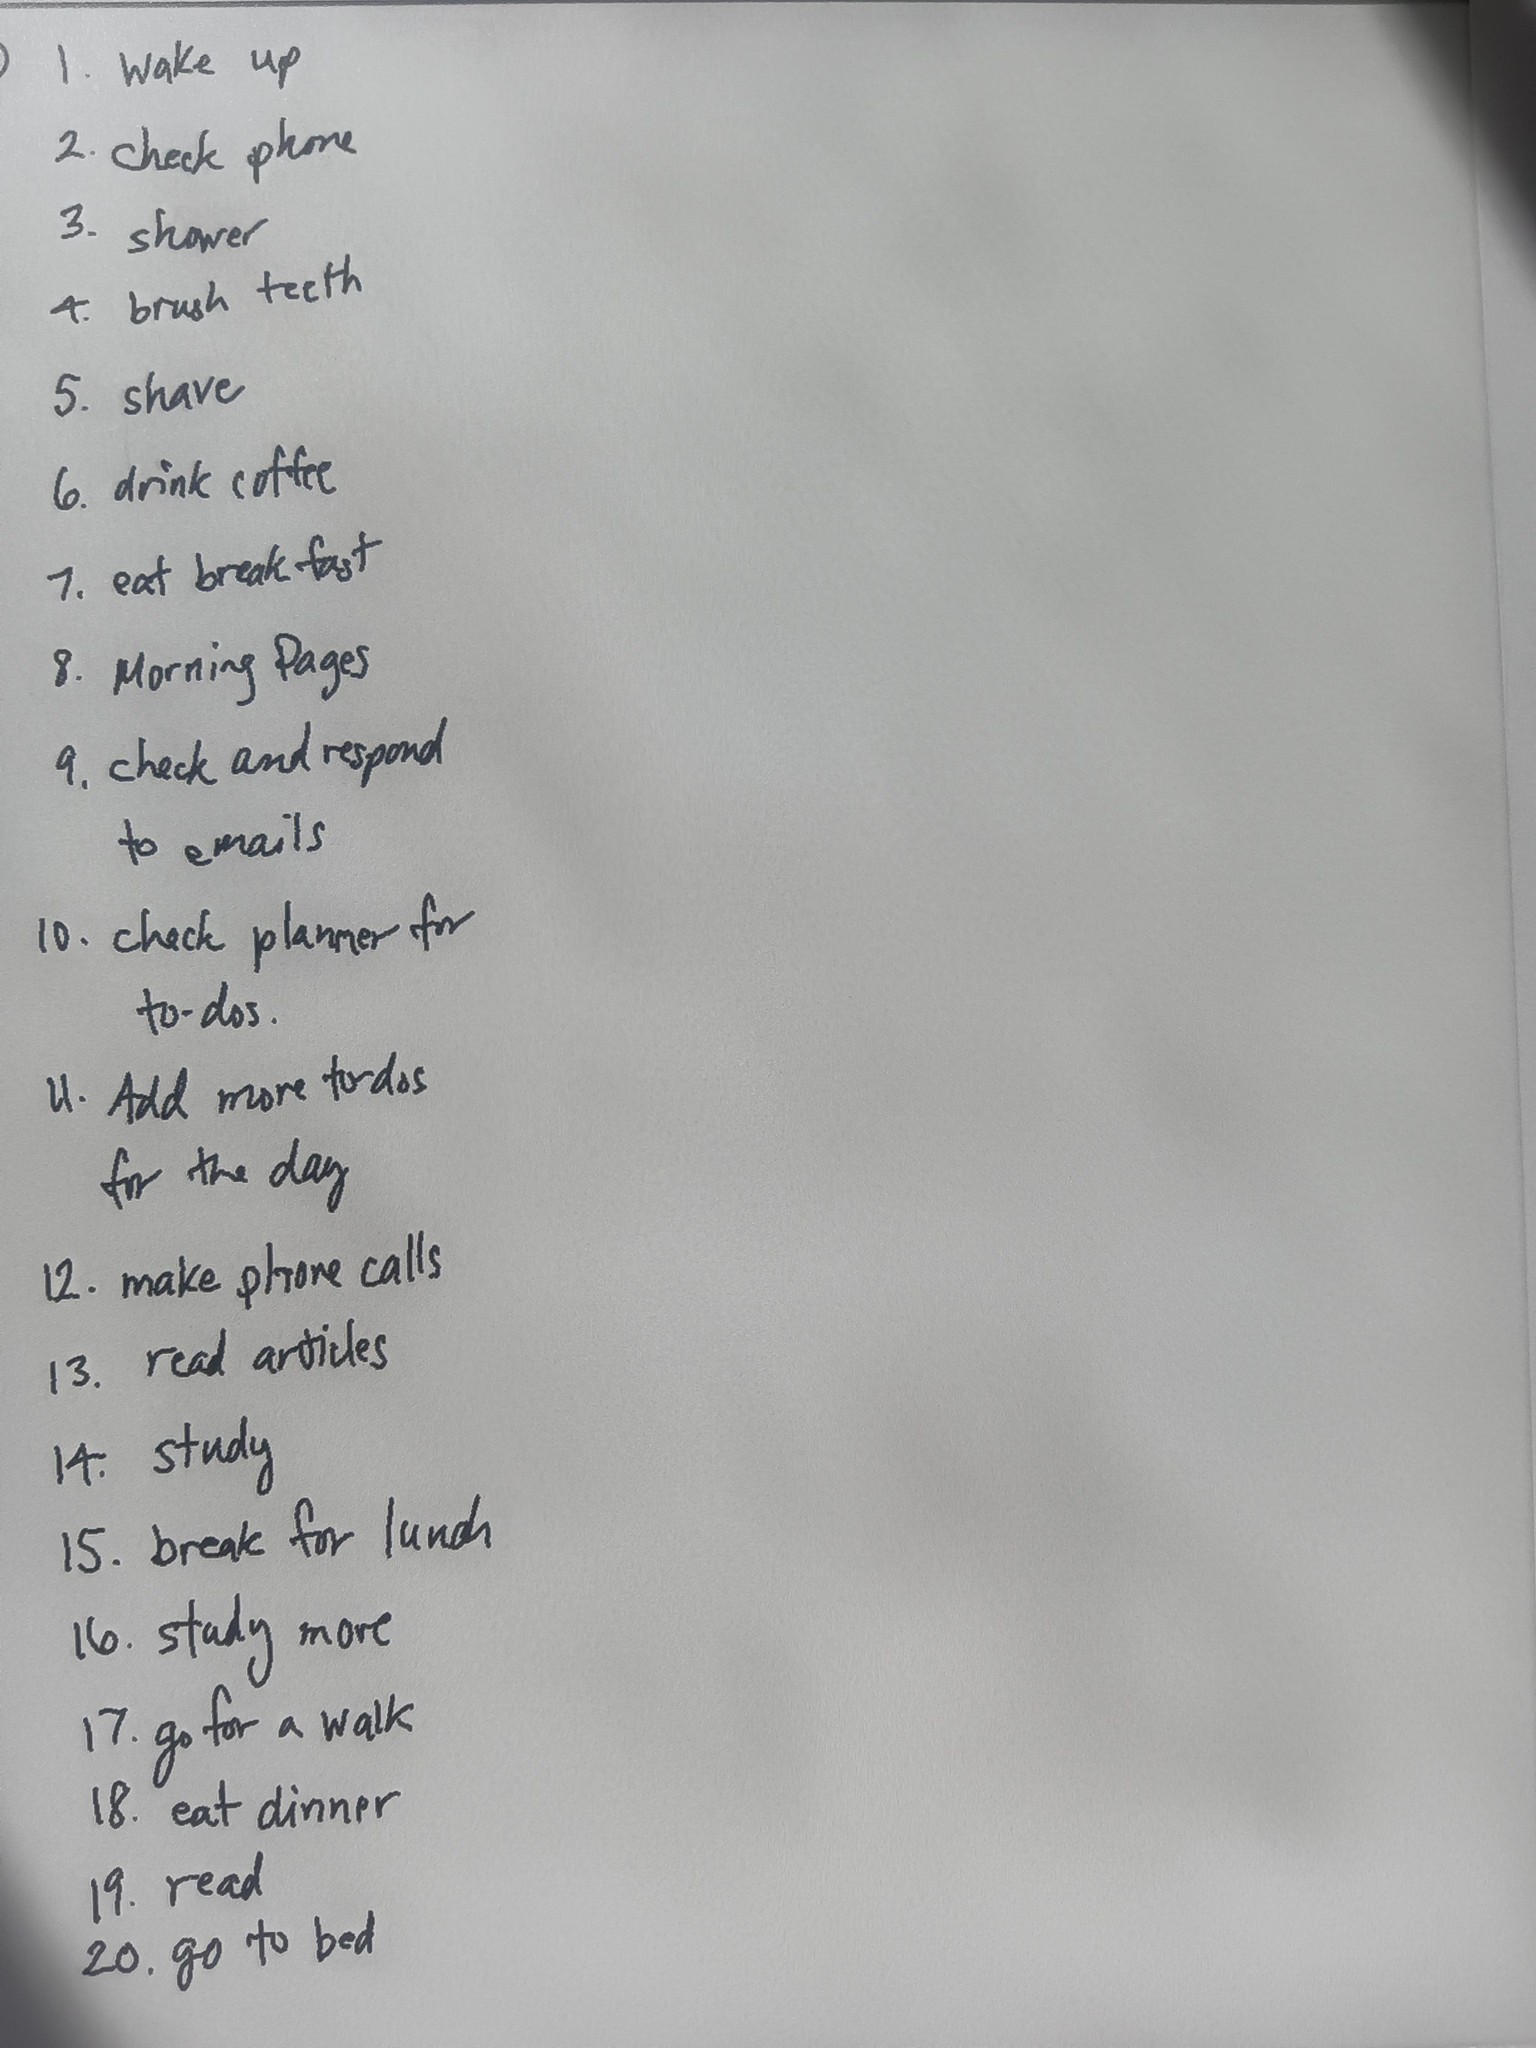 1. wake up
2. check phone
3. shower
4. brush teeth
5. shave
6. drink coffee
7. eat breakfast
8. Morning Pages
9. check and respond
to emails
10. check planner for
to-dos.
11. Add more to-dos
for the day
12. make phone calls
13. read articles
14. study
15. break for lunch
16. study more
17. go for a walk
18. eat dinner
19. read
20. go to bed